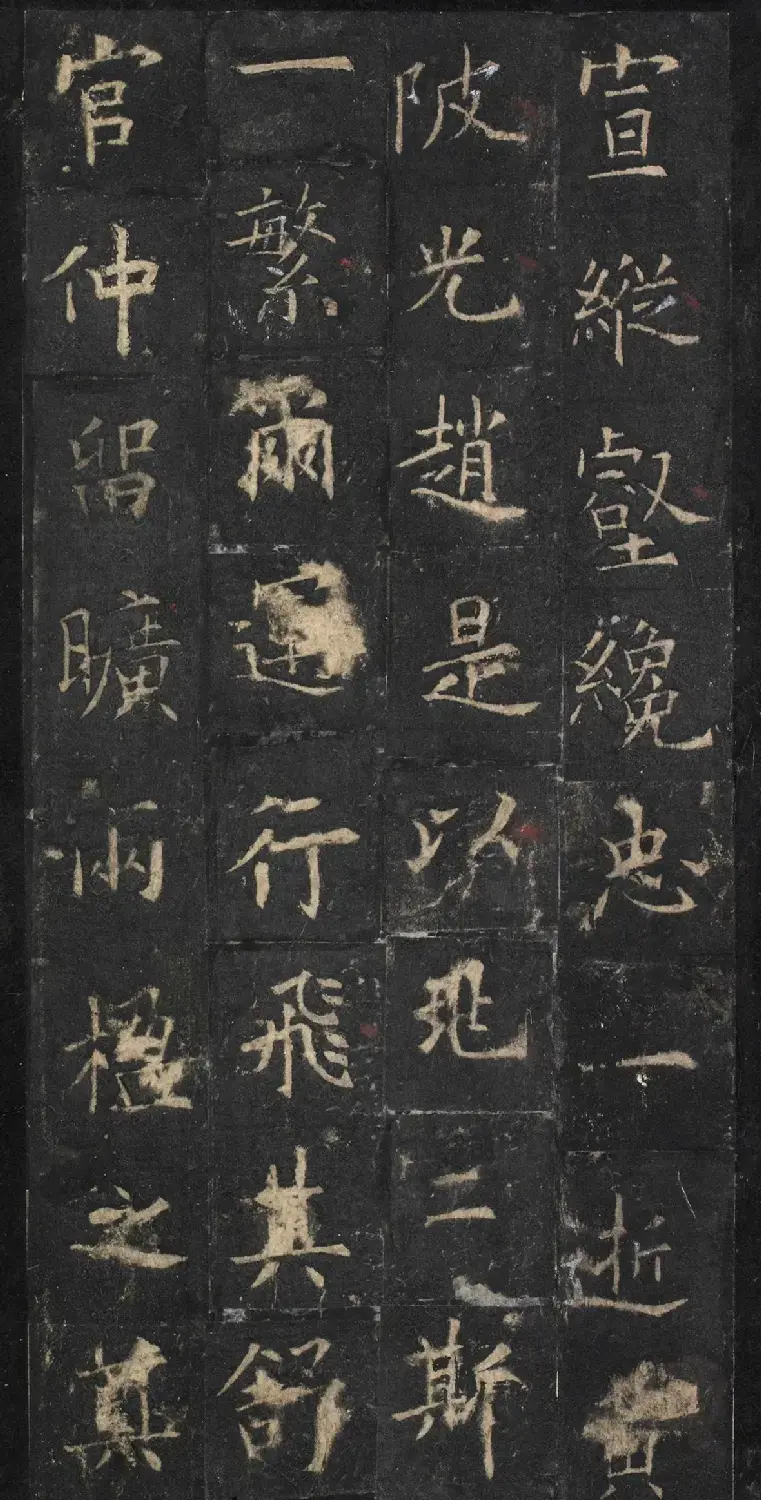 宣縱壑纔忠一逝
陂光趙是以二斯
一繁爾行飛其
官仲留曠兩楹之奠